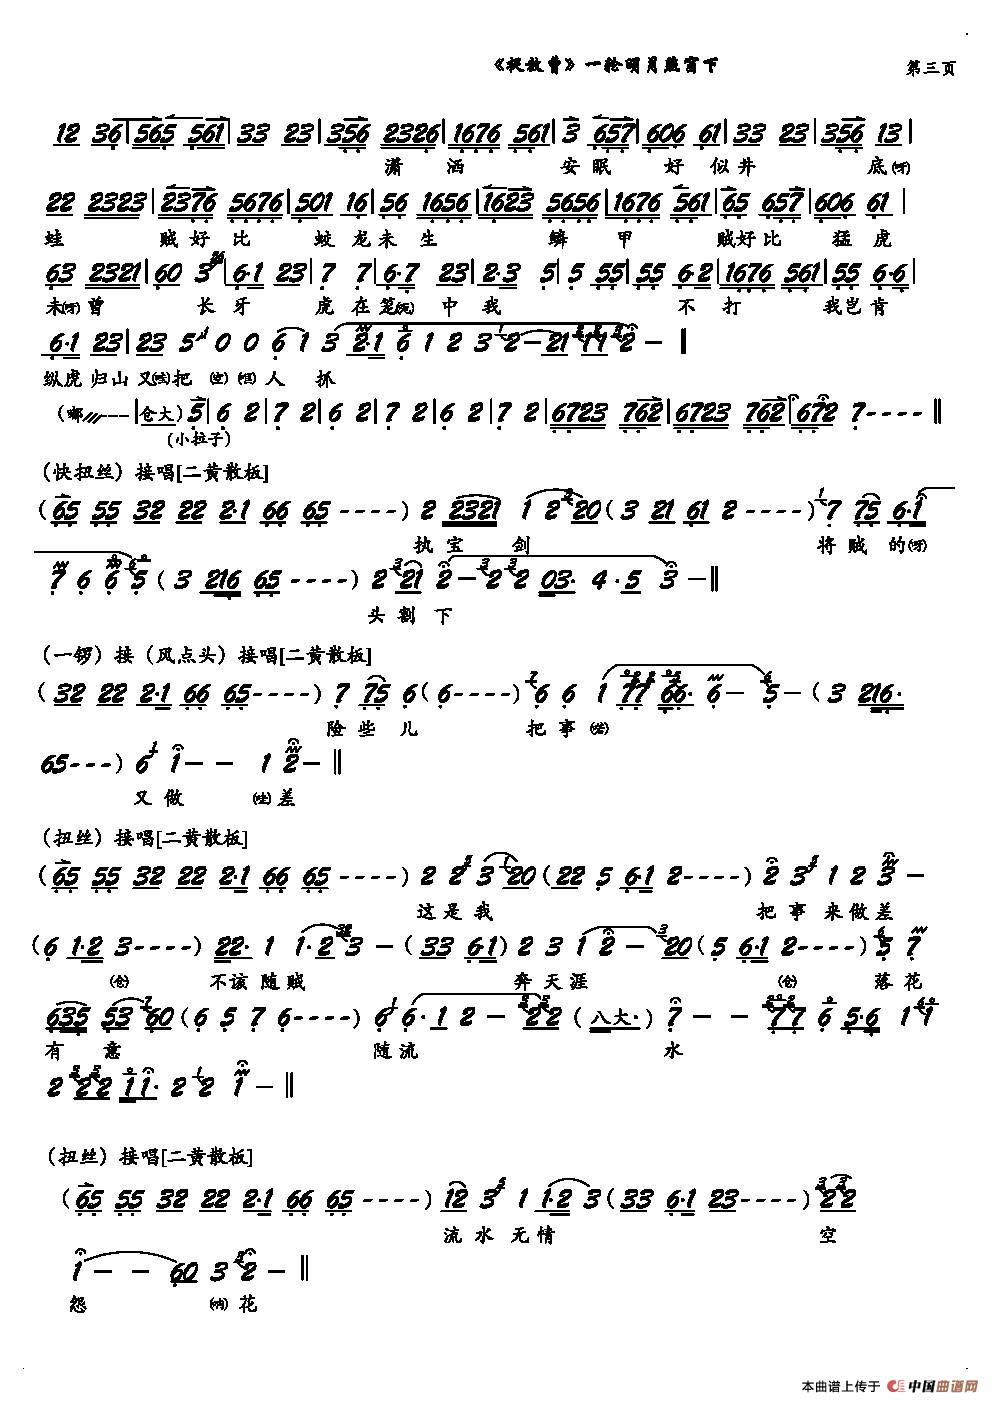 《捉放曹》一轮明月照窗下 第三页
12 36 565 561 33 23 356 2326 1676 561 3 657 606 61 33 23 356 13
潇 洒 安 眠 好 似 井 底(呀)
22 2323 2376 5676 501 16 56 1656 1623 5656 1676 561 65 657 606 61
蛙 贼 好 比 蛟 龙 未 生 鳞 甲 贼 好 比 猛 虎
63 2321 60 3 6·1 23 7 7 6·7 23 2·3 5 5 55 55 6·2 1676 561 55 6·6
未(呀)曾 长 牙 虎 在 笼 中 我 不 打 我 岂 肯
6·1 23 23 5 0 0 6 1 3 2·1 6 1 2 3 2- 21 77 2 -
纵虎 归山 又 把 人 抓
(嘟 --- 仓大) 5 6 2 7 2 6 2 7 2 6 2 7 2 6723 762 6723 762 672 7----
(小拉子)
(快扭丝) 接唱[二黄散板]
(65 55 32 22 2·1 66 65 ----) 2 2321 1 2 20 (3 21 61 2 ----) 7 75 6·1
执 宝 剑 将 贼 的(呀)
7 6 6 5 (3 216 65 ----) 2 21 2 - 2 2 03· 4·5 3 -
头 割 下
(一锣) 接 (风点头) 接唱[二黄散板]
(32 22 2·1 66 65----) 7 75 6 (6----) 6 6 1 77 66· 6- 5- (3 216·
险 些 儿 把 事
65---) 6 1- - 1 2-
又 做 (哇)差
(扭丝) 接唱[二黄散板]
(65 55 32 22 2·1 66 65 ----) 2 2 3 20 (22 5 6·1 2----) 2 3 1 2 3 -
这 是 我 把 事 来 做 差
(6 1·2 3----) 22· 1 1·2 3 - (33 6·1) 2 3 1 2 - 20 (5 6·1 2----) 5 7
(仓) 不 该 随 贼 奔 天 涯 (仓) 落 花
635 53 60 (6 5 7 6----) 6 6·1 2 - 22 (八大·) 7 - - 77 6 5·6 1 1
有 意 随 流 水
2 22 11· 2 2 1 -
(扭丝) 接唱[二黄散板]
(65 55 32 22 2·1 66 65 ----) 12 3 1 1·2 3 (33 6·1 23----) 22
流 水 无 情 空
1 - - 60 3 2 -
怨 (呐)花
本曲谱上传于 中国曲谱网